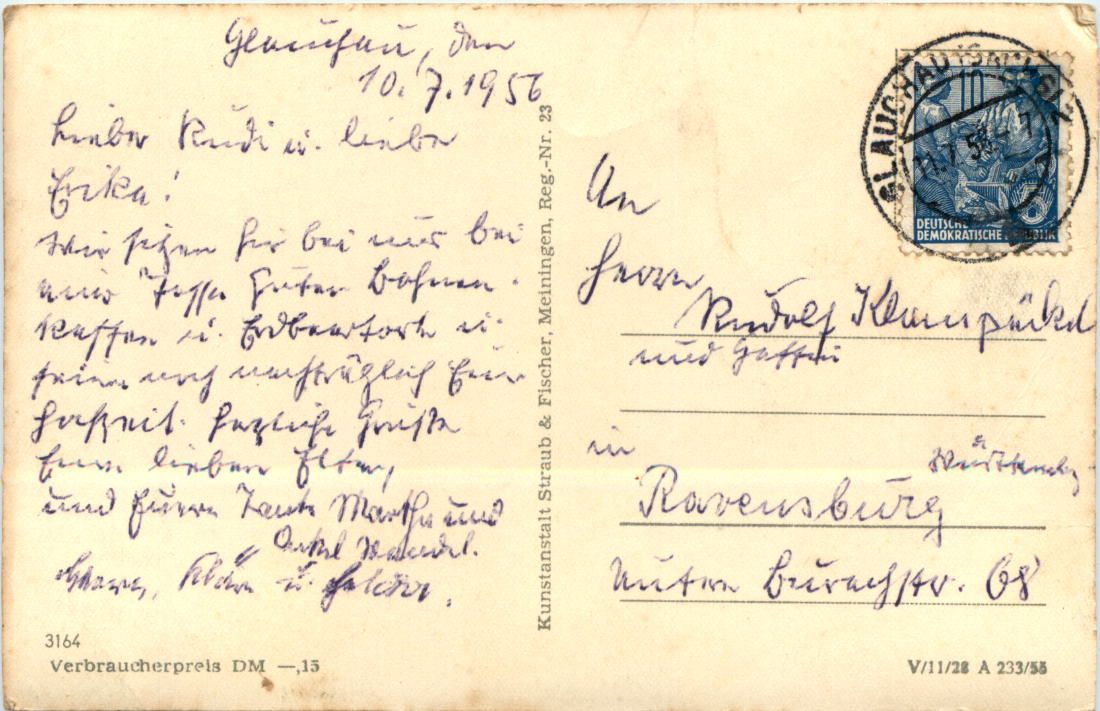 Glauchau, den
10.7.1956
Lieber Rudi u. liebe
Erika!
Wir sitzen hier bei uns bei
einer Tasse guten Bohnen-
kaffee u. Erdbeertorte u.
feiern noch nachträglich Eure
Hochzeit. Herzliche Grüße
Eure lieben Eltern,
und Eure Tante Martha und
Onkel
Kläre u.
3164
Verbraucherpreis DM —,15
Kunstanstalt Straub & Fischer, Meiningen, Reg.-Nr. 23
GLAUCHAU
11.7.58
10
DEUTSCHE
DEMOKRATISCHE REPUBLIK
An
Herrn
Rudolf
und Gattin
in
Württembg
Ravensburg
Untere Burachstr. 68
V/11/28 A 233/55